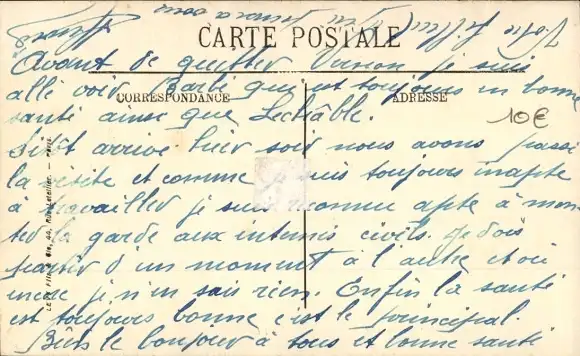 CARTE POSTALE
Avant de quitter Vernon je suis
allé voir Barbé qui est toujours en bonne
CORRESPONDANCE
ADRESSE
santé ainsi que
10€
Sitôt arrivé hier soir nous avons passé
la visite et comme je suis toujours inapte
à travailler je suis reconnu apte à mon
ter la garde aux internés civils. Je dois
partir d'un moment à l'autre et où
je n'en sais rien. Enfin la santé
est toujours bonne c'est le principal.
Bien le bonjour à tous et bonne santé